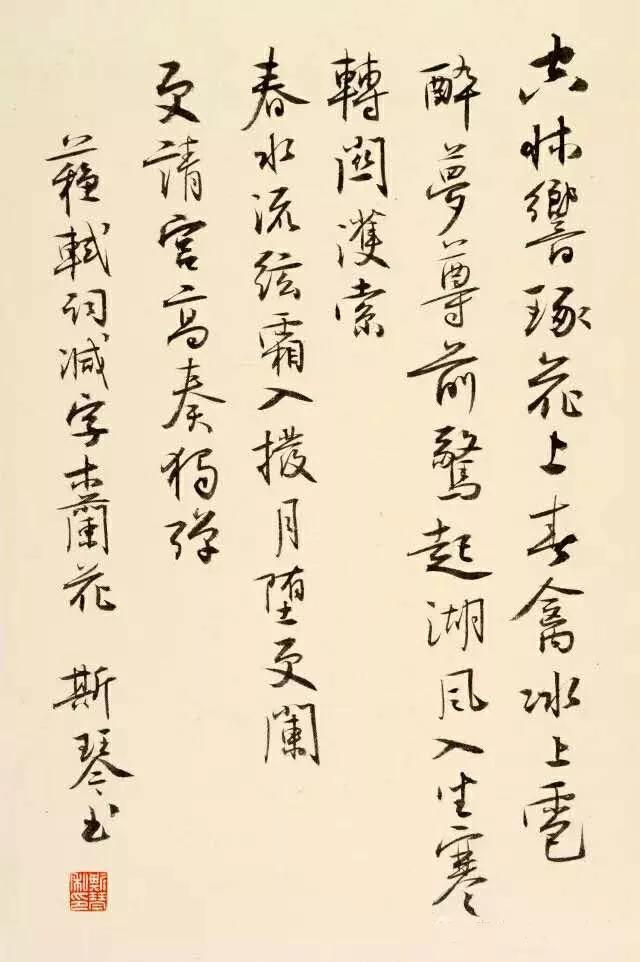 空牀響琢花上春禽冰上雹
醉夢尊前驚起湖風入坐寒
轉関濩索
春水流絃霜入撥月堕更闌
更請宮高奏獨彈
蘇軾詞減字木蘭花 斯琴書
斯琴私印